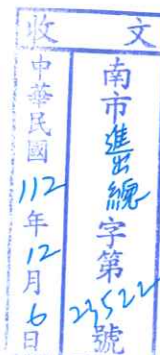 收文
南市進出總字第23522號
中華民國112年12月6日